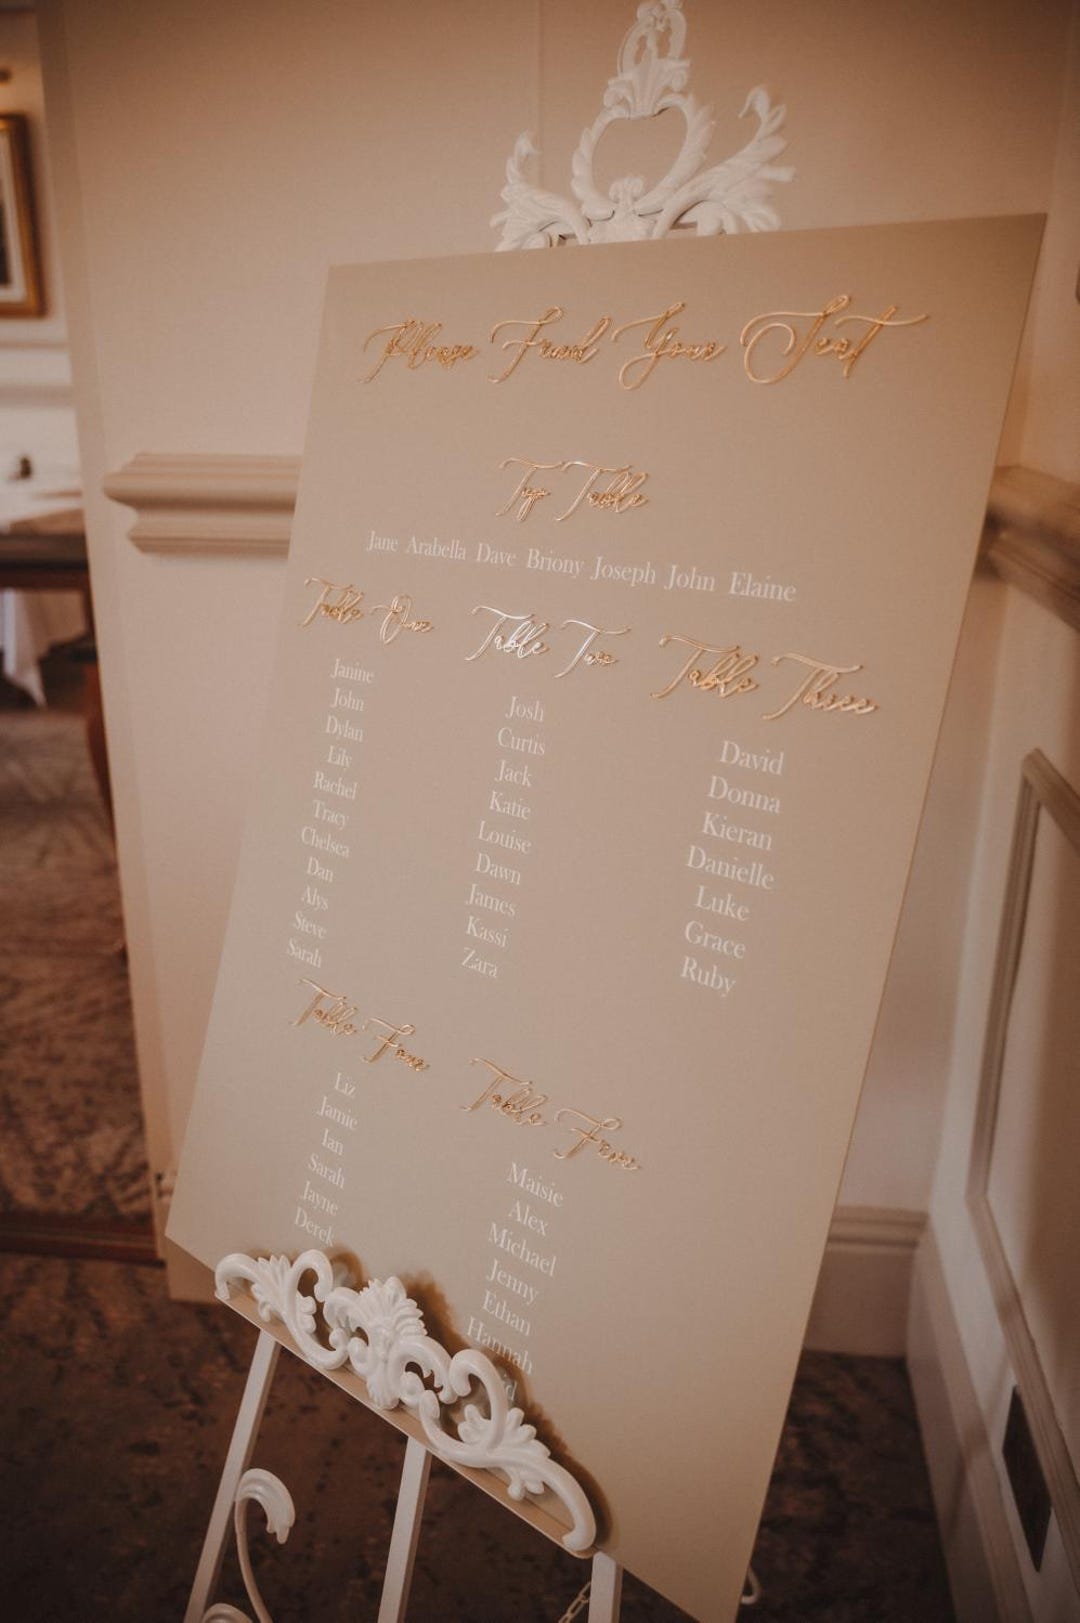 Please Find Your Seat
Top Table
Jane Arabella Dave Briony Joseph John Elaine
Table One
Janine
John
Dylan
Lily
Rachel
Tracy
Chelsea
Dan
Alys
Steve
Sarah
Table Two
Josh
Curtis
Jack
Katie
Louise
Dawn
James
Kassi
Zara
Table Three
David
Donna
Kieran
Danielle
Luke
Grace
Ruby
Table Four
Liz
Jamie
Ian
Sarah
Jayne
Derek
Table Five
Maisie
Alex
Michael
Jenny
Ethan
Hannah